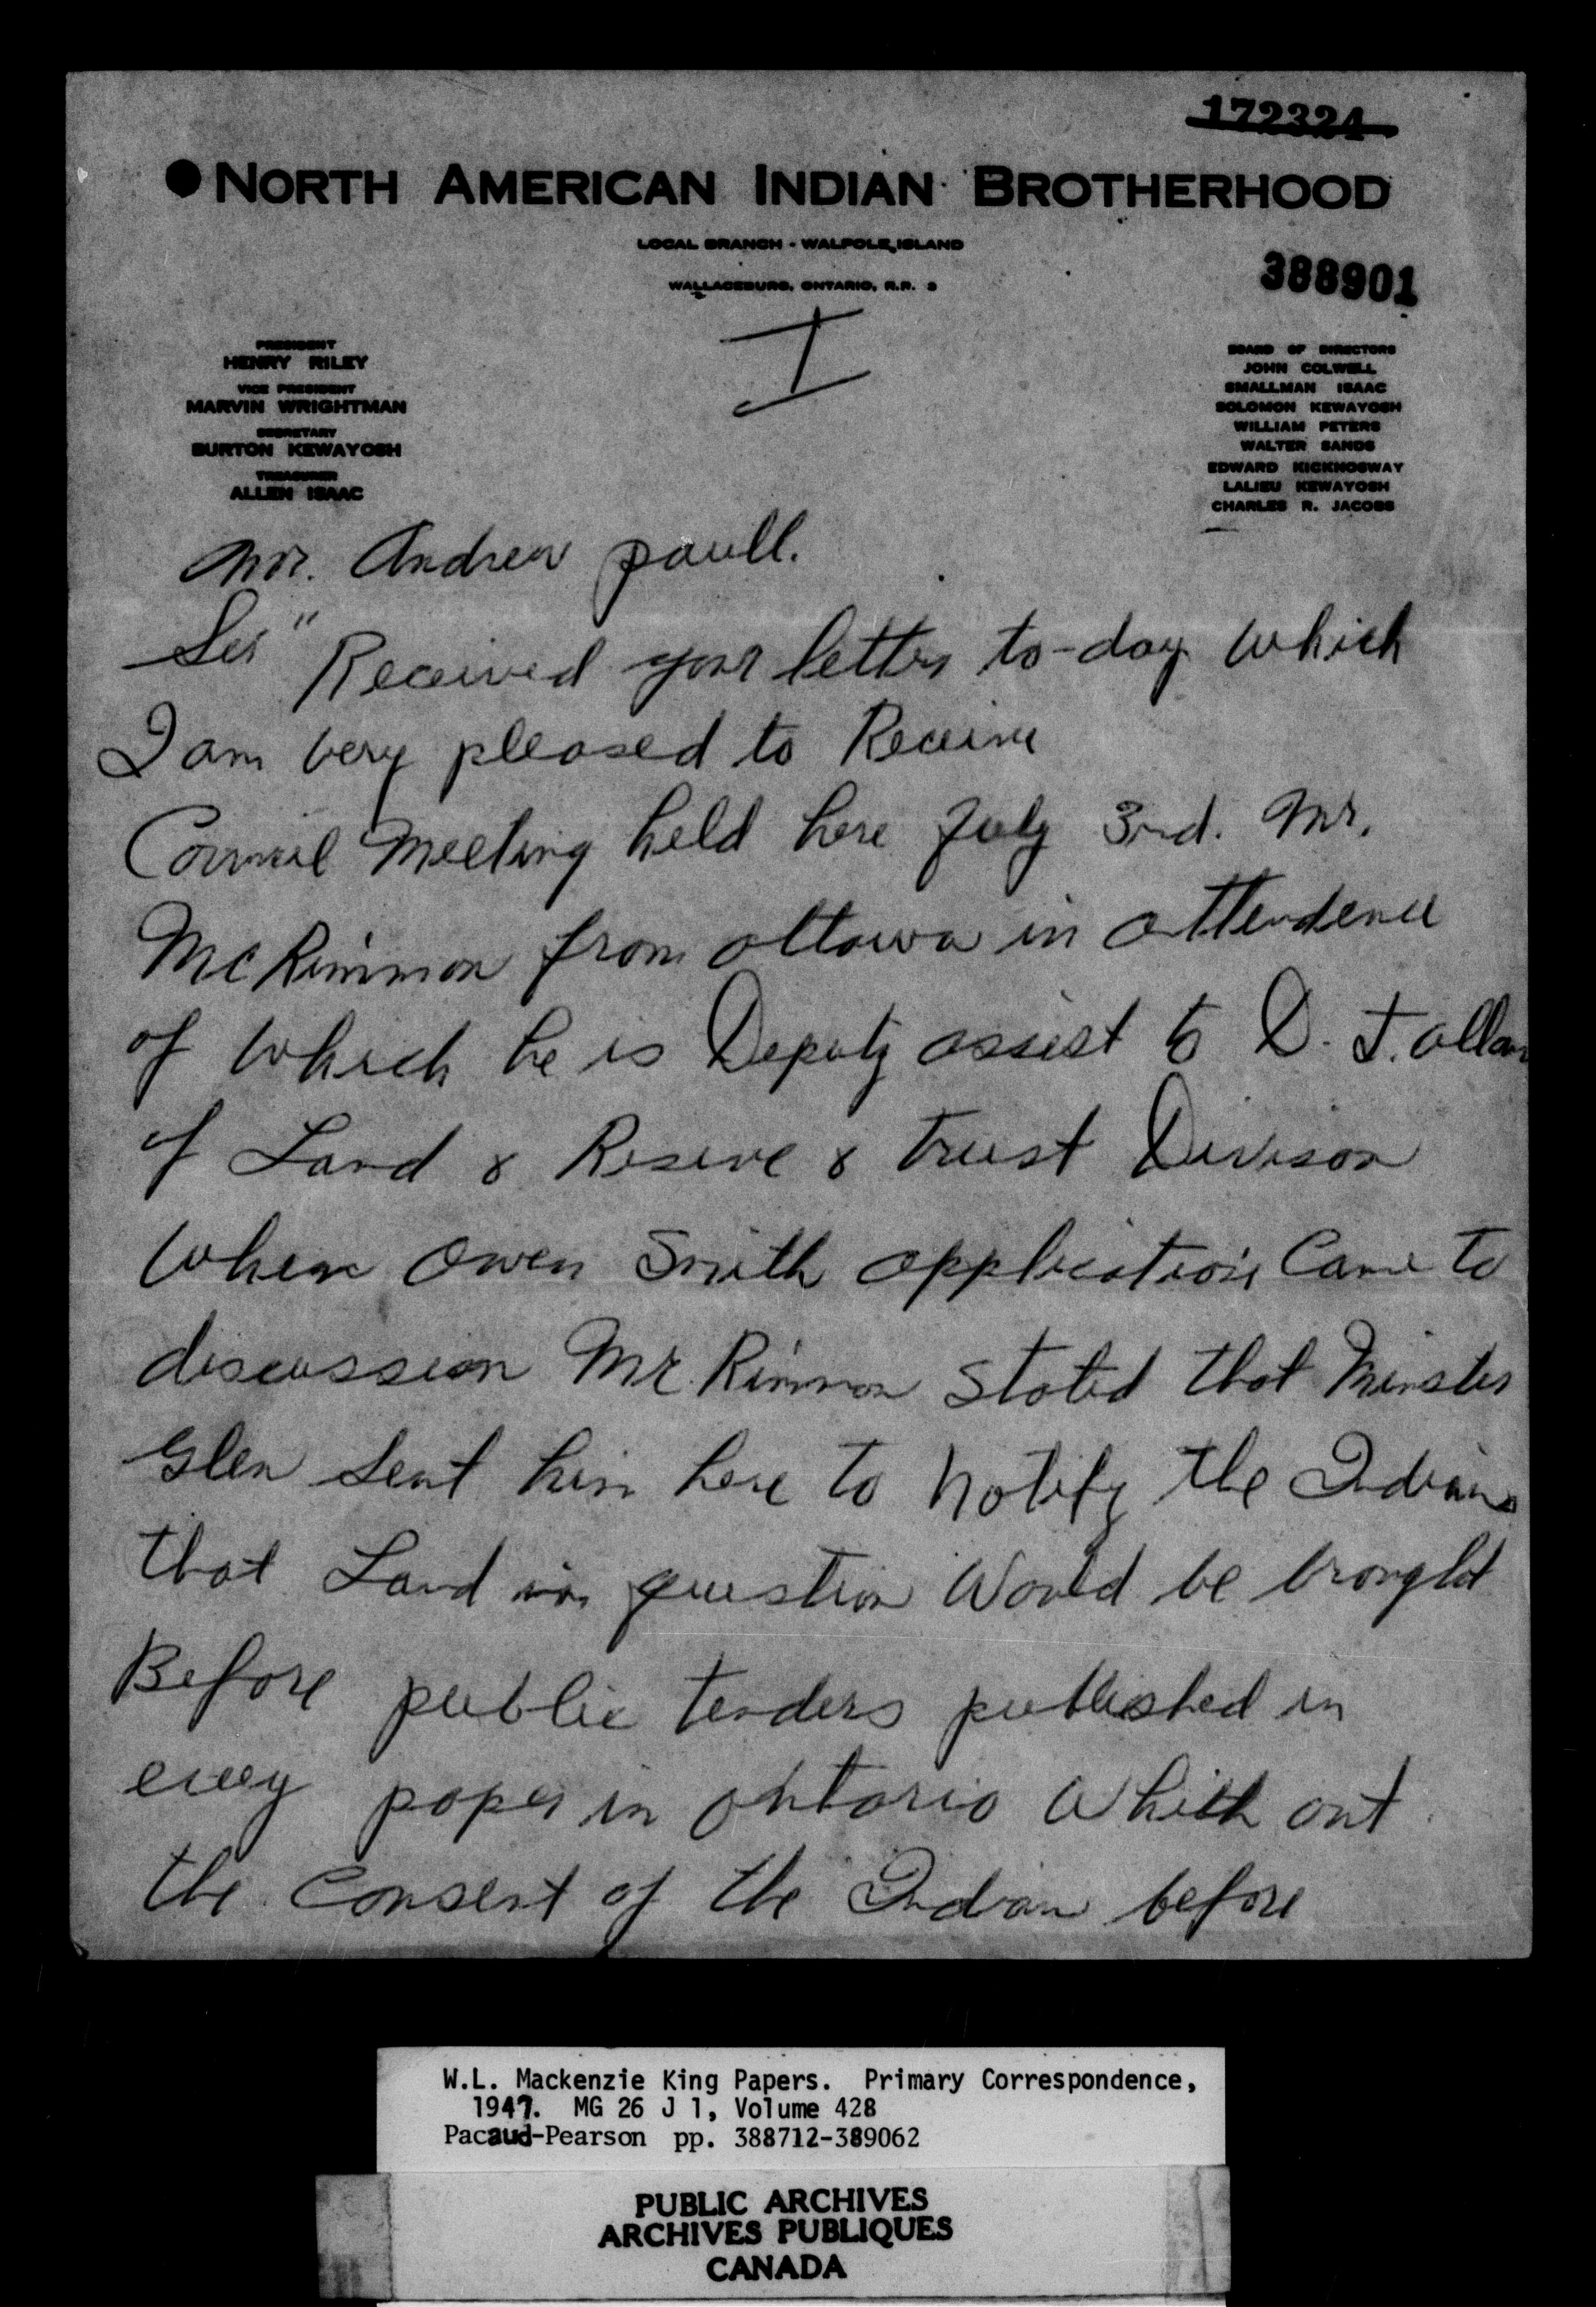 172324
NORTH AMERICAN INDIAN BROTHERHOOD
LOCAL BRANCH - WALPOLE ISLAND
388901
WALLACEBURG, ONTARIO, R.R. 3
I
PRESIDENT
HENRY RILEY
VICE PRESIDENT
MARVIN WRIGHTMAN
SECRETARY
BURTON KEWAYOSH
TREASURER
ALLEN ISAAC
BOARD OF DIRECTORS
JOHN COLWELL
SMALLMAN ISAAC
SOLOMON KEWAYOSH
WILLIAM PETERS
WALTER SANDS
EDWARD KICKNOSWAY
LALIEU KEWAYOSH
CHARLES R. JACOBS
Mr. Andrew paull.
Sir" Received your letter to-day which
I am very pleased to Receive
Council Meeting held here July 3rd. Mr.
McRimmon from ottawa in attendence
of which he is Deputy assist to D. J. allan
of Land & Reserve & trust Divison
When Owen Smith application Came to
discussion Mc.Rimmon stated that Minster
Glen sent him here to notify the Indians
that Land in question Would be brought
Before public tenders published in
every paper in ontario Whith out
the Consent of the Indian before
W.L. Mackenzie King Papers. Primary Correspondence,
1947. MG 26 J 1, Volume 428
Pacaud-Pearson pp. 388712-389062
PUBLIC ARCHIVES
ARCHIVES PUBLIQUES
CANADA